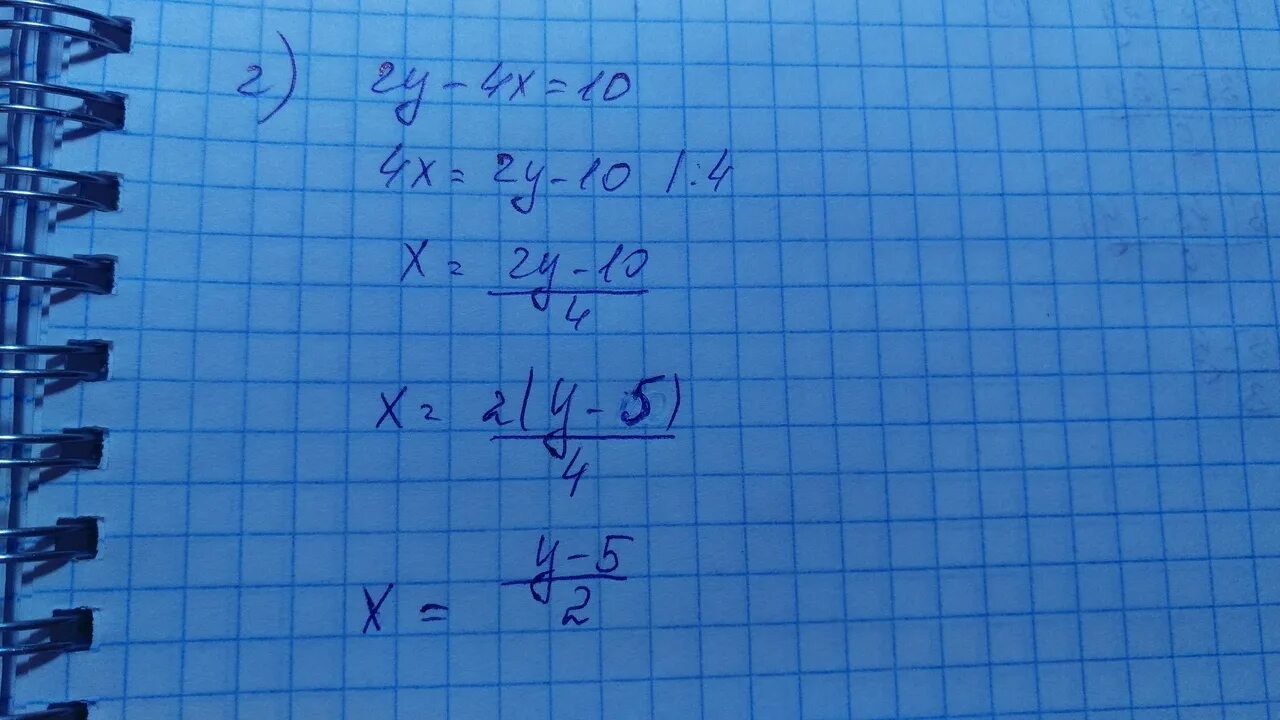 2) 2y - 4x = 10
4x = 2y - 10 |:4
x = \frac{2y - 10}{4}
x = \frac{2(y - 5)}{4}
x = \frac{y - 5}{2}